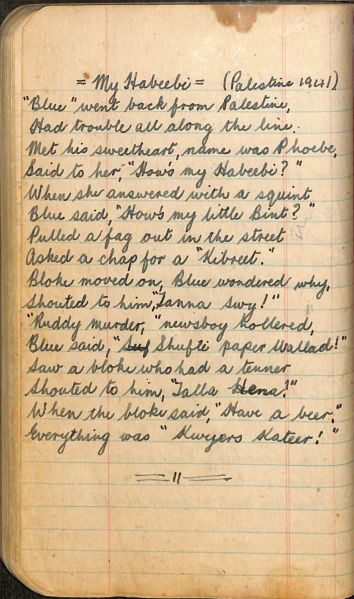 = My Habeebi = (Palestine 1941)
"Blue" went back from Palestine,
Had trouble all along the line.
Met his sweetheart, name was Phoebe,
Said to her, "How's my Habeebi?"
When she answered with a squint
Blue said, "How's my little Bint?"
Pulled a fag out in the street
Asked a chap for a "Kibreet."
Bloke moved on, Blue wondered why,
Shouted to him, "Tanna Swy!"
"Ruddy murder," newsboy hollered,
Blue said, "Shufti paper Wallad!"
Saw a bloke who had a tenner
Shouted to him, "Talla Hena?"
When the bloke said, "Have a beer,"
Everything was "Kwyers Kateer!"
11